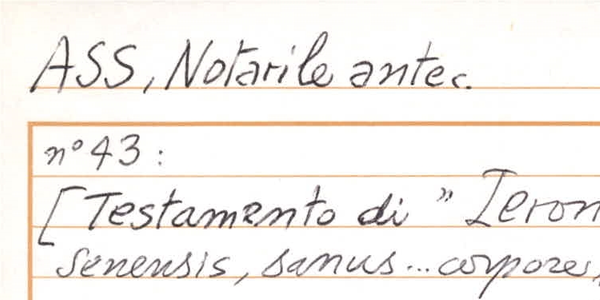 ASS, Notarile antec.
n° 43 :
[Testamento di " Ieron
senensis, sanus... corpore,